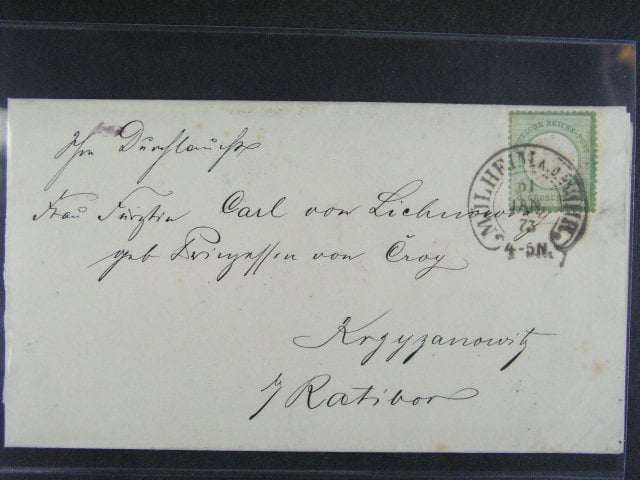 Ihre Durchlaucht
Frau Fürstin Carl von Lichnowsky
geb Prinzessen von Croy
Krzyzanowitz
b/ Ratibor
DEUTSCHE REICHS-POST
MÜLHEIM A. D. RUHR.
JAN
73
4-5N.